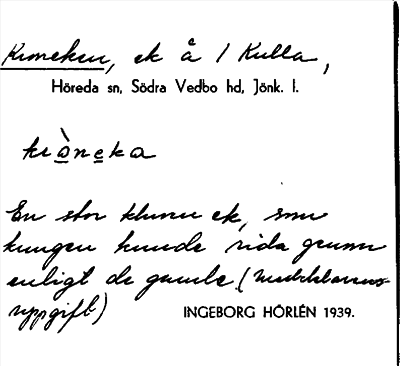 Kroneken, ek å 1 Kulla,
Höreda sn, Södra Vedbo hd, Jönk. l.
kròneka
En stor ek, som
kungen kunde rida genom
enligt de gamle. (
uppgift)
INGEBORG HÖRLÉN 1939.